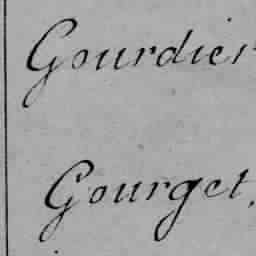 Gourdier
Gourget.